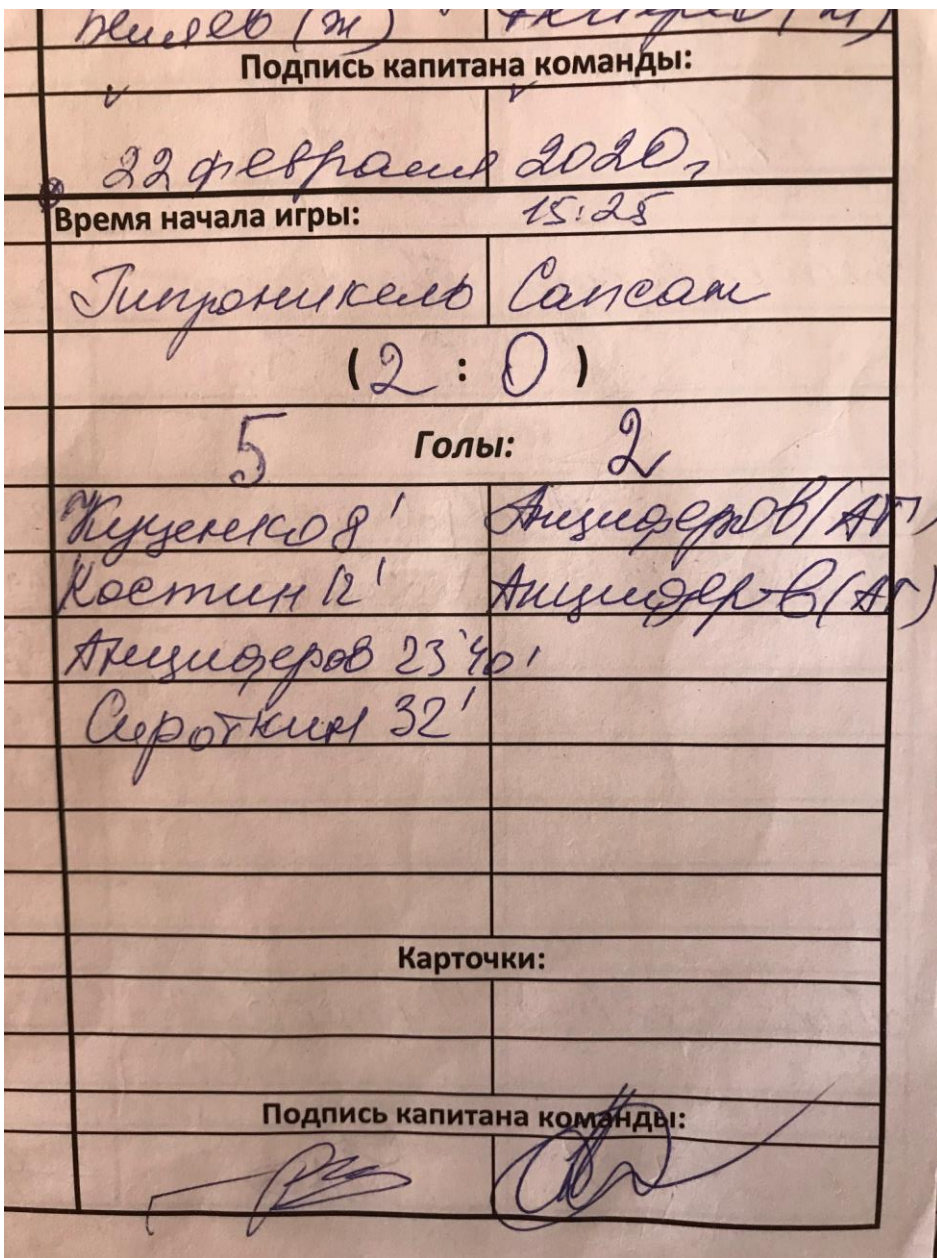 (ж)
Подпись капитана команды:
22 февраля 2020г
Время начала игры: 15:25
Гипроникель Сапсан
(2 : 0)
5 Голы: 2
Куценко 8' Анциферов (АГ)
Костин 12' Анциферов (АГ)
Анциферов 23' 40'
Сироткин 32'
Карточки:
Подпись капитана команды: